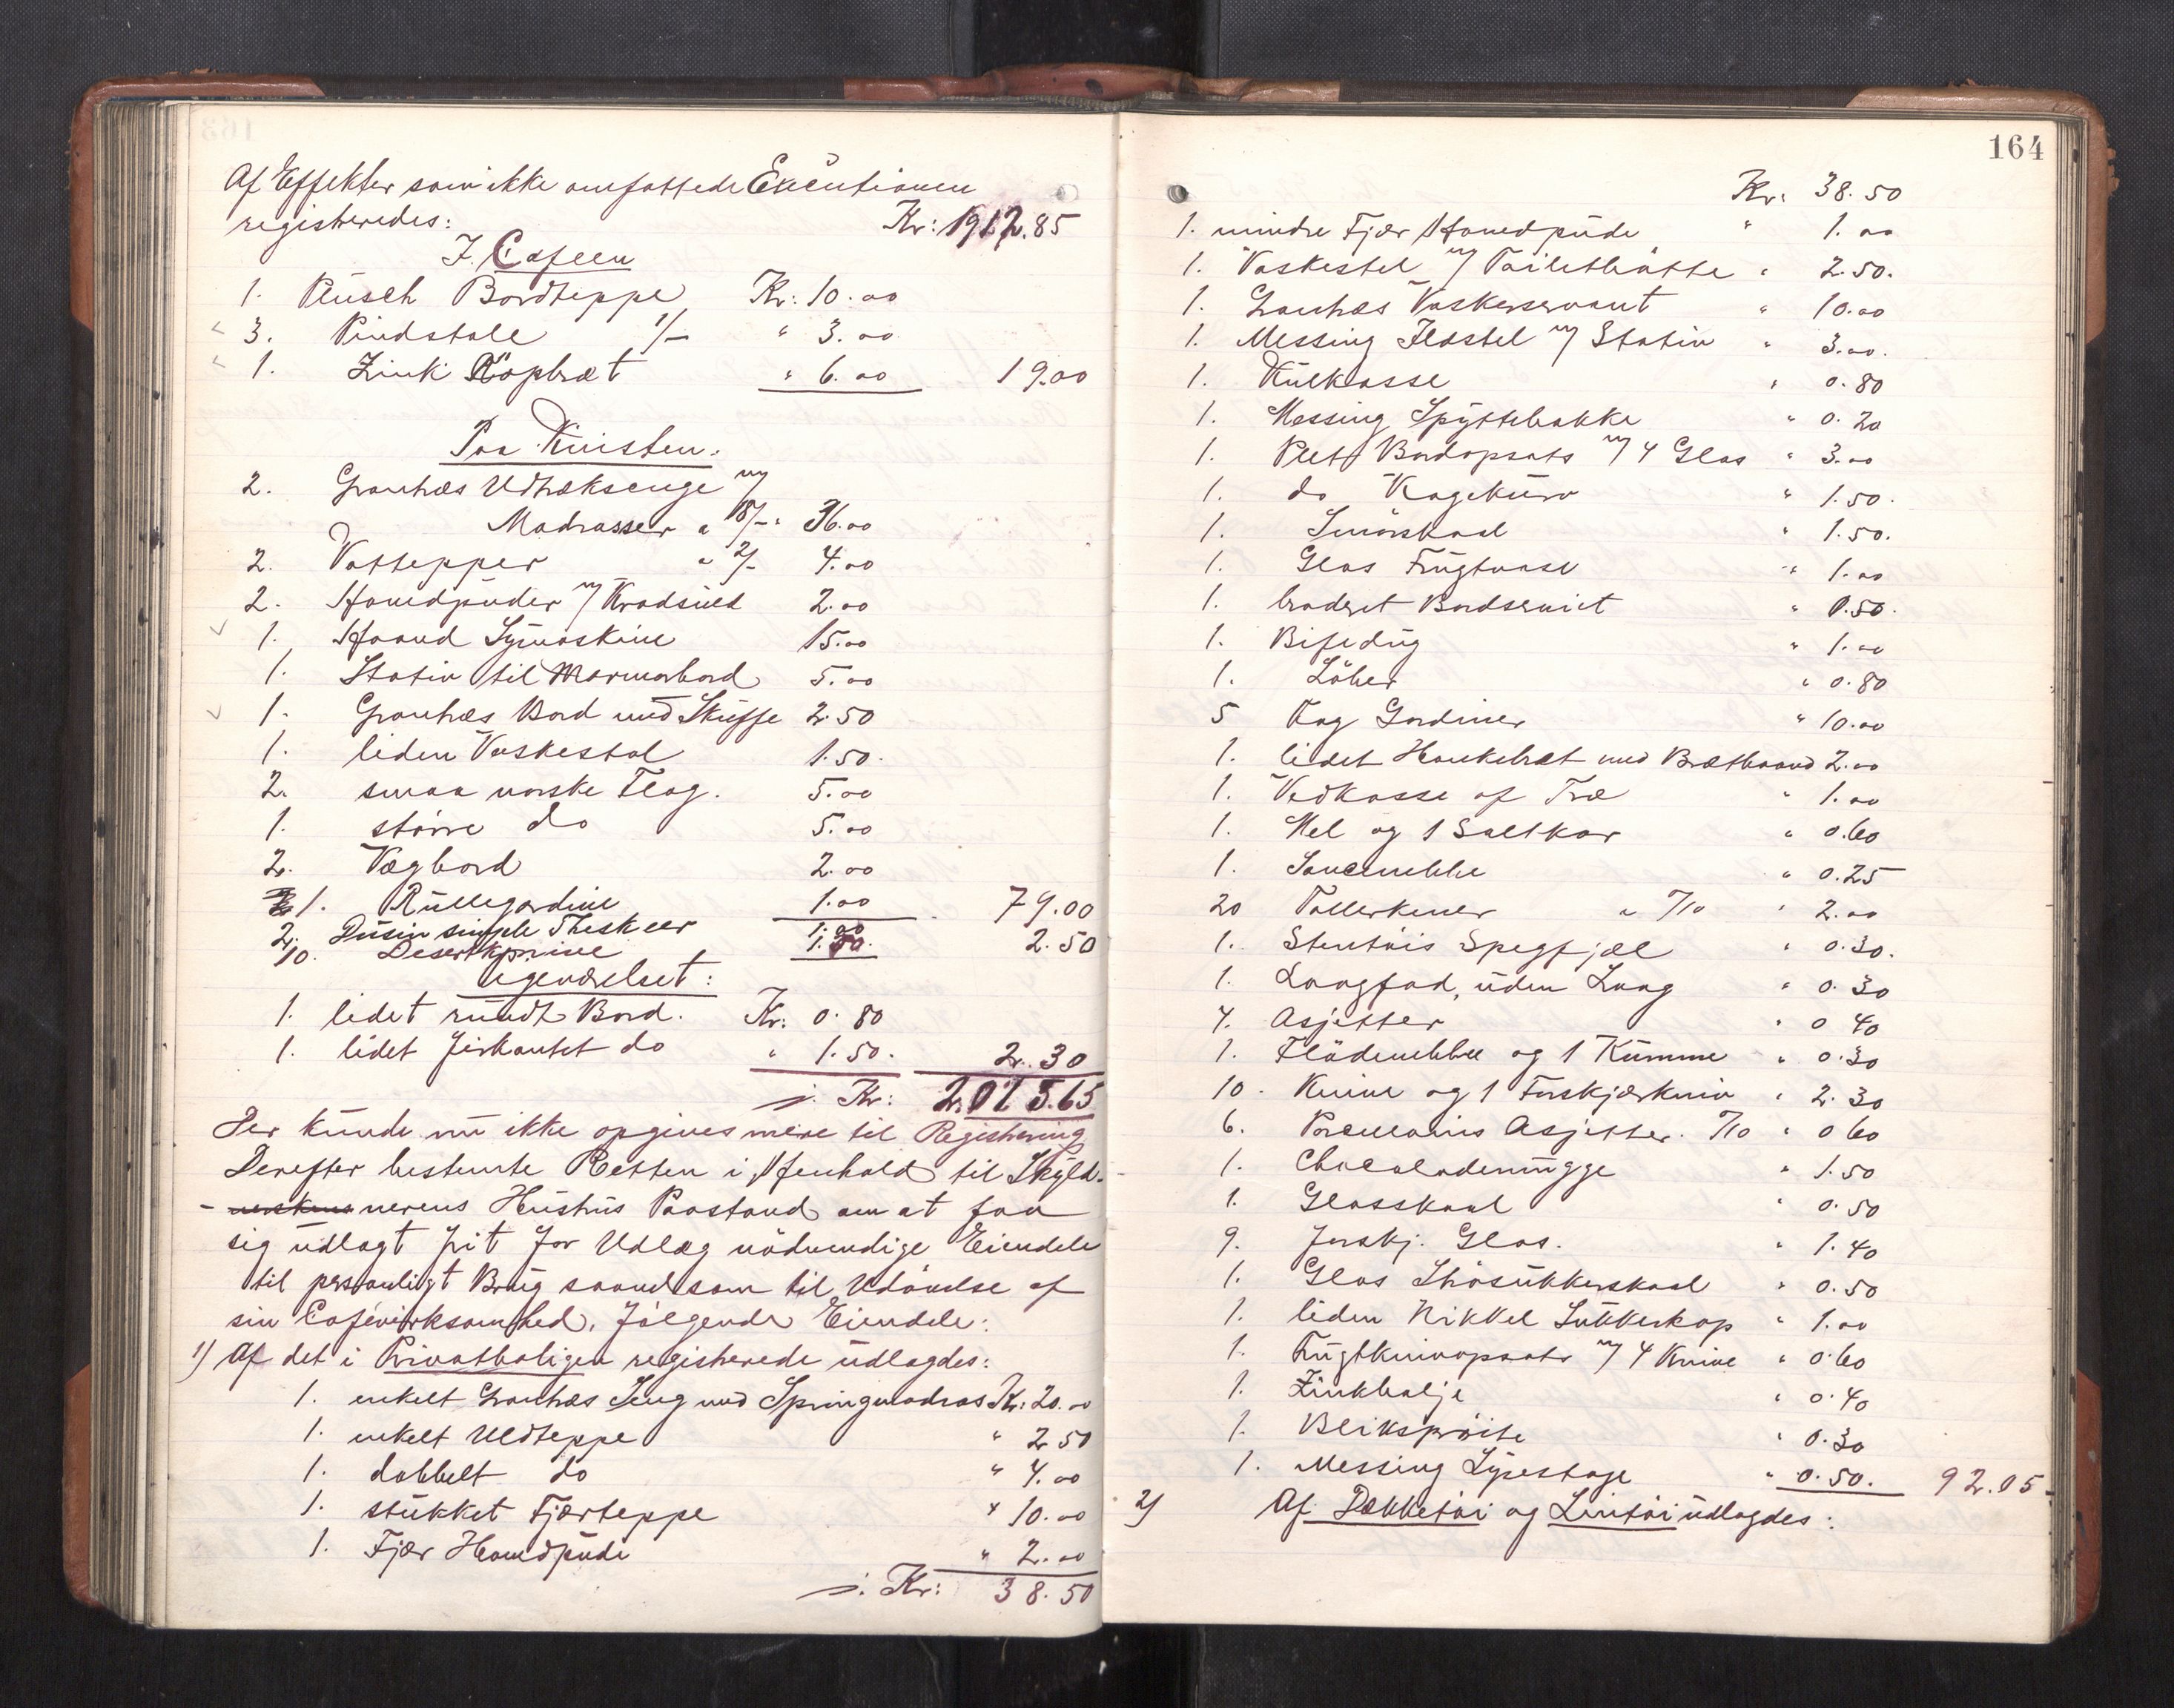 Af Effekter som ikke omfattede Executionen
registreredes: Kr: 1912.85
I. Cafeen
1. Plüsch Bordteppe Kr: 10.00
3. Pindstole 1/- " 3.00
1. Zink Kopbræt " 6.00 19.00
Paa Kvisten.
2. Grantræs Udtræksenge m/
Madrasser a 18/- " 36.00
2. Vattepper a 2/- 4.00
2. Hovedpuder m/ Kradsuld 2.00
1. Haand Symaskine 15.00
1. Stativ til Marmorbord 5.00
1. Grantræs Bord med Skuffe 2.50
1. liden Vaskestol 1.50.
2. smaa norske Flag. 5.00
1. större do 5.00
2. Vægbord 2.00
1. Rullegardine 1.00 79.00
2. Dusin simple Theskeer 1.00
10. Desertknive 1.50. 2.50
Ugeværelset:
1. lidet rundt Bord. Kr: 0.80
1. lidet firkantet do " 1.50. 2.30
s. Kr: 2.015.65
Der kunde nu ikke opgives mere til Registrering
Derefter bestemte Retten i Henhold til Skyld-
- nerens Hustrus Paastand om at faa
sig udlagt frit for Udlæg nödvendige Eiendele
til personligt Brug saavelsom til Udövelse af
sin Cafévirksomhed, fölgende Eiendele:
1) Af det i Privatboligen registrerede udlagdes:
1. enkelt Grantræs Seng med Springmadras Kr: 20.00
1. enkelt Uldteppe " 2.50
1. dobbelt do " 4.00
1. stukket Fjærteppe " 10.00
1. Fjær Hovedpude " 2.00
s. Kr: 38.50
164
Kr. 38.50
1. mindre Fjær Hovedpude " 1.00
1. Vaskestel m/ Toiletbötte " 2.50.
1. Grantræs Vaskeservant " 10.00
1. Messing Ildstel m/ Stativ " 3.00.
1. Kulkasse " 0.80
1. Messing Spyttebakke " 0.20
1. Plet Bordopsats m/ 4 Glas " 3.00
1. do Kagekurv " 1.50.
1. Smörskaal " 1.50.
1. Glas Frugtvase " 1.00
1. broderet Bordserviet " 0.50.
1. Bifedug " 1.00
1. Löber " 0.80
5 Fag Gardiner " 10.00
1. lidet Hankebræt med Brætbaand 2.00
1. Vedkasse af Træ " 1.00
1. Mel og 1 Saltkar " 0.60
1. Saucenebbe " 0.25
20 Tallerkener a 7/10 " 2.00
1. Stentöis Spegfjæl " 0.30.
1. Langfad, uden Laag " 0.30
4. Asjetter " 0 40
1. Flödenebbe og 1 Kumme " 0.30
10. Knive og 1 Forskjærkniv " 2.30
6. Porcellains Asjetter. 7/10 " 0 60
1. Chocolademugge " 1.50
1. Glasskaal " 0.50
9. forskj. Glas. " 1.40
1. Glas Strösukkerskaal " 0.50
1. liden Nikkel Sukkerkop " 1.00
1. Frugtknivopsats m/ 4 Knive " 0.60
1. Zinkbalje " 0.40
1. Blikspröite " 0.30
1. Messing Lysestage " 0.50. 92.05
2) Af Dækketöi og Lintöi udlagdes: